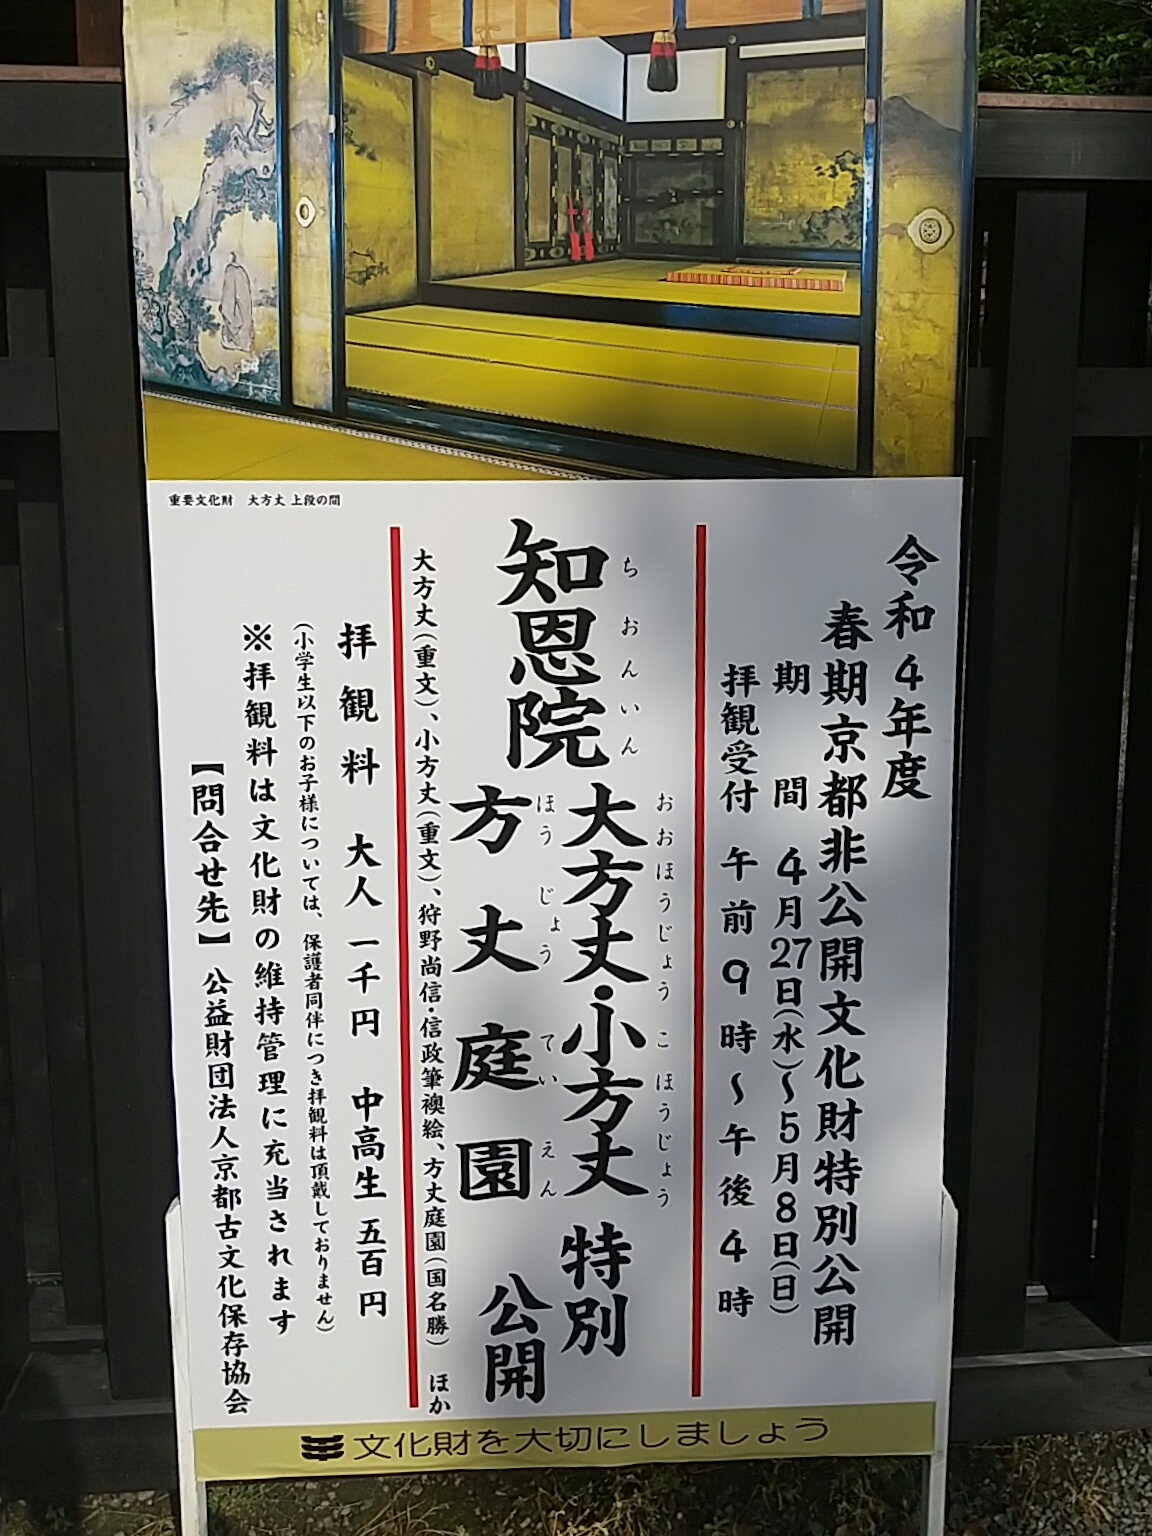 重要文化財　大方丈 上段の間
令和4年度
春期京都非公開文化財特別公開
期間 4月27日(水)〜5月8日(日)
拝観受付 午前9時〜午後4時
知恩院
ちおんいん
大方丈・小方丈 特別
おおほうじょう こほうじょう
方丈庭園 公開
ほうじょうていえん
大方丈(重文)、小方丈(重文)、狩野尚信・信政筆襖絵、方丈庭園(国名勝) ほか
拝観料 大人 一千円 中高生 五百円
(小学生以下のお子様については、保護者同伴につき拝観料は頂戴しておりません)
※拝観料は文化財の維持管理に充当されます
【問合せ先】公益財団法人京都古文化保存協会
文化財を大切にしましょう